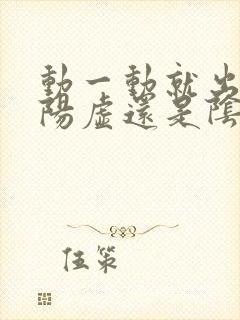 動一動就出
陽虛還是陰
伍策